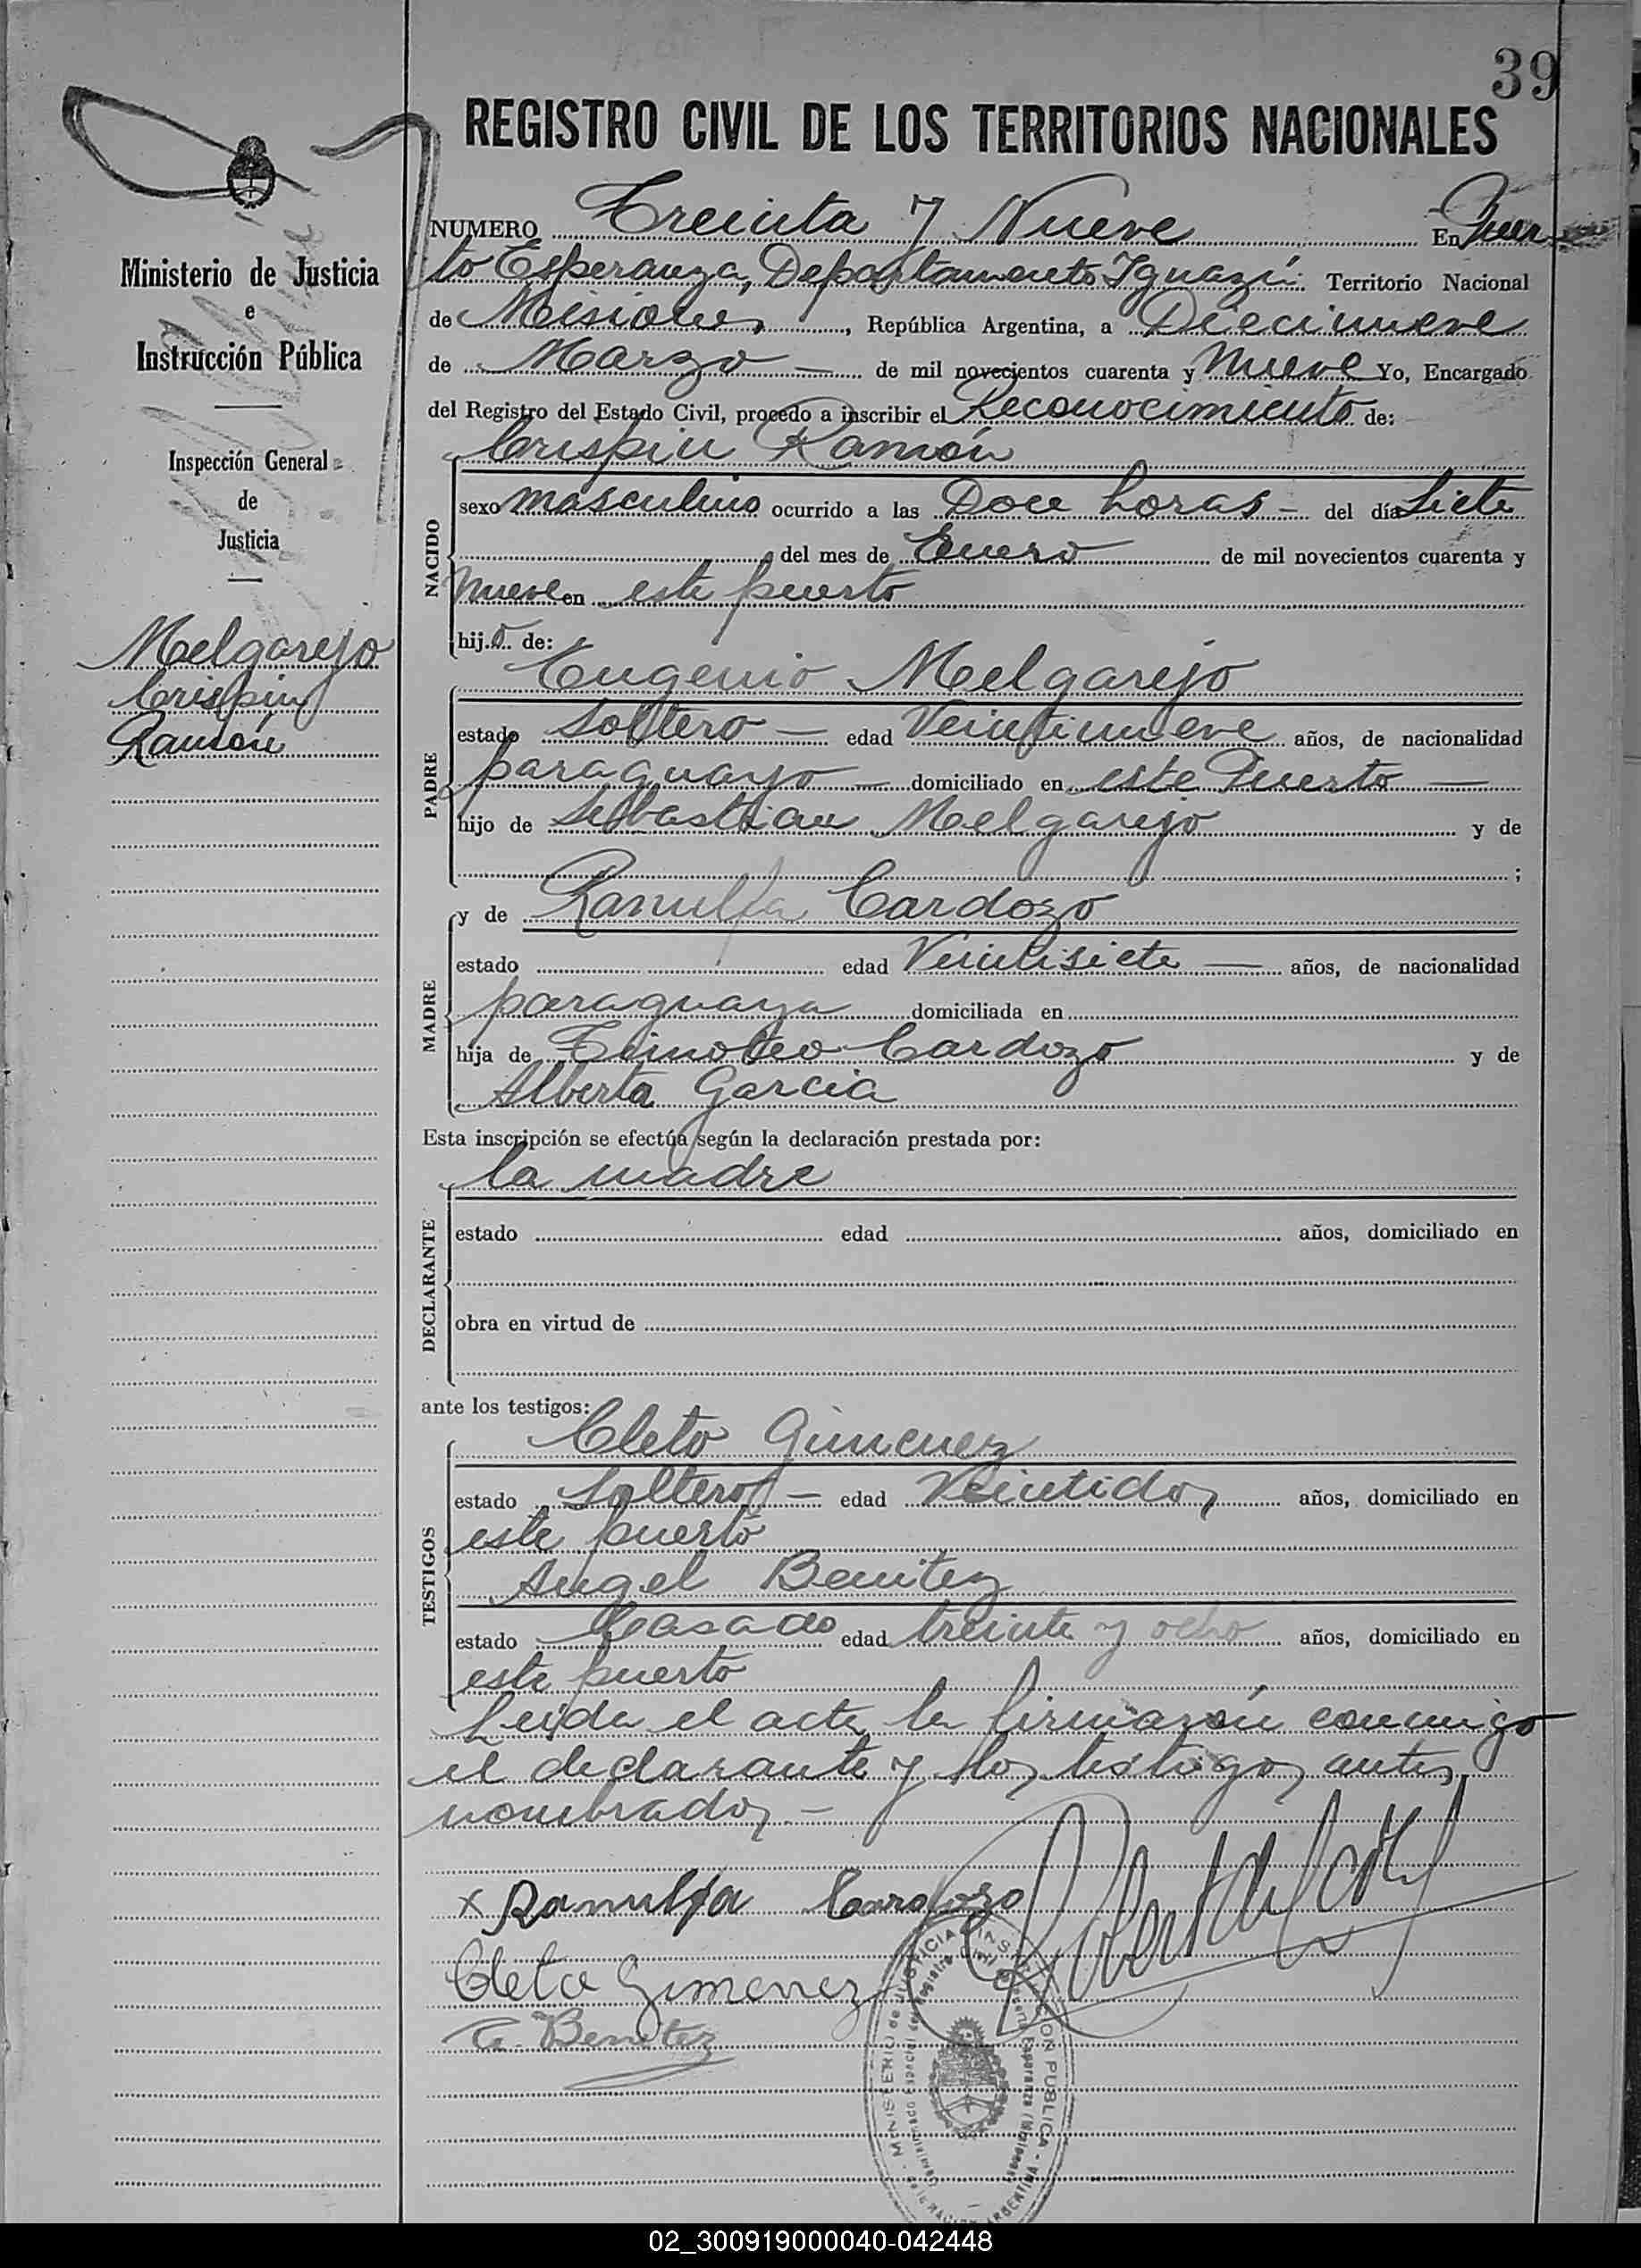 39
REGISTRO CIVIL DE LOS TERRITORIOS NACIONALES
Ministerio de Justicia
e
Instrucción Pública
Inspección General
de
Justicia
Melgarejo
Crispin
Ramón
NUMERO Treinta y Nueve En Puer
to Esperanza, Departamento Iguazú. Territorio Nacional
de Misiones, República Argentina, a Diecinueve
de Marzo — de mil novecientos cuarenta y Nueve Yo, Encargado
del Registro del Estado Civil, procedo a inscribir el Reconocimiento de:
Crispin Ramón
NACIDO
sexo masculino ocurrido a las Doce horas - del día Siete
del mes de Enero de mil novecientos cuarenta y
Nueve en este puerto
hij.o. de:
Eugenio Melgarejo
PADRE
estado Soltero — edad Veintinueve años, de nacionalidad
paraguayo — domiciliado en este Puerto —
hijo de Sebastian Melgarejo y de
;
y de Ranulfa Cardozo
MADRE
estado edad Veintisiete — años, de nacionalidad
paraguaya domiciliada en
hija de Timoteo Cardozo y de
Alberta Garcia
Esta inscripción se efectúa según la declaración prestada por:
la madre
DECLARANTE
estado edad años, domiciliado en
obra en virtud de
ante los testigos:
Cleto Gimenez
TESTIGOS
estado Soltero — edad Veintidos años, domiciliado en
este puerto
Angel Benitez
estado Casado edad treinta y ocho años, domiciliado en
este puerto
Leida el acta la firmarón conmigo
el declarante y los testigos antes
nombrados —
x Ranulfa Cardozo
Cleto Gimenez
A. Benitez
MINISTERIO de JUSTICIA e INSTRUCCION PUBLICA - NACION ARGENTINA
02_300919000040-042448